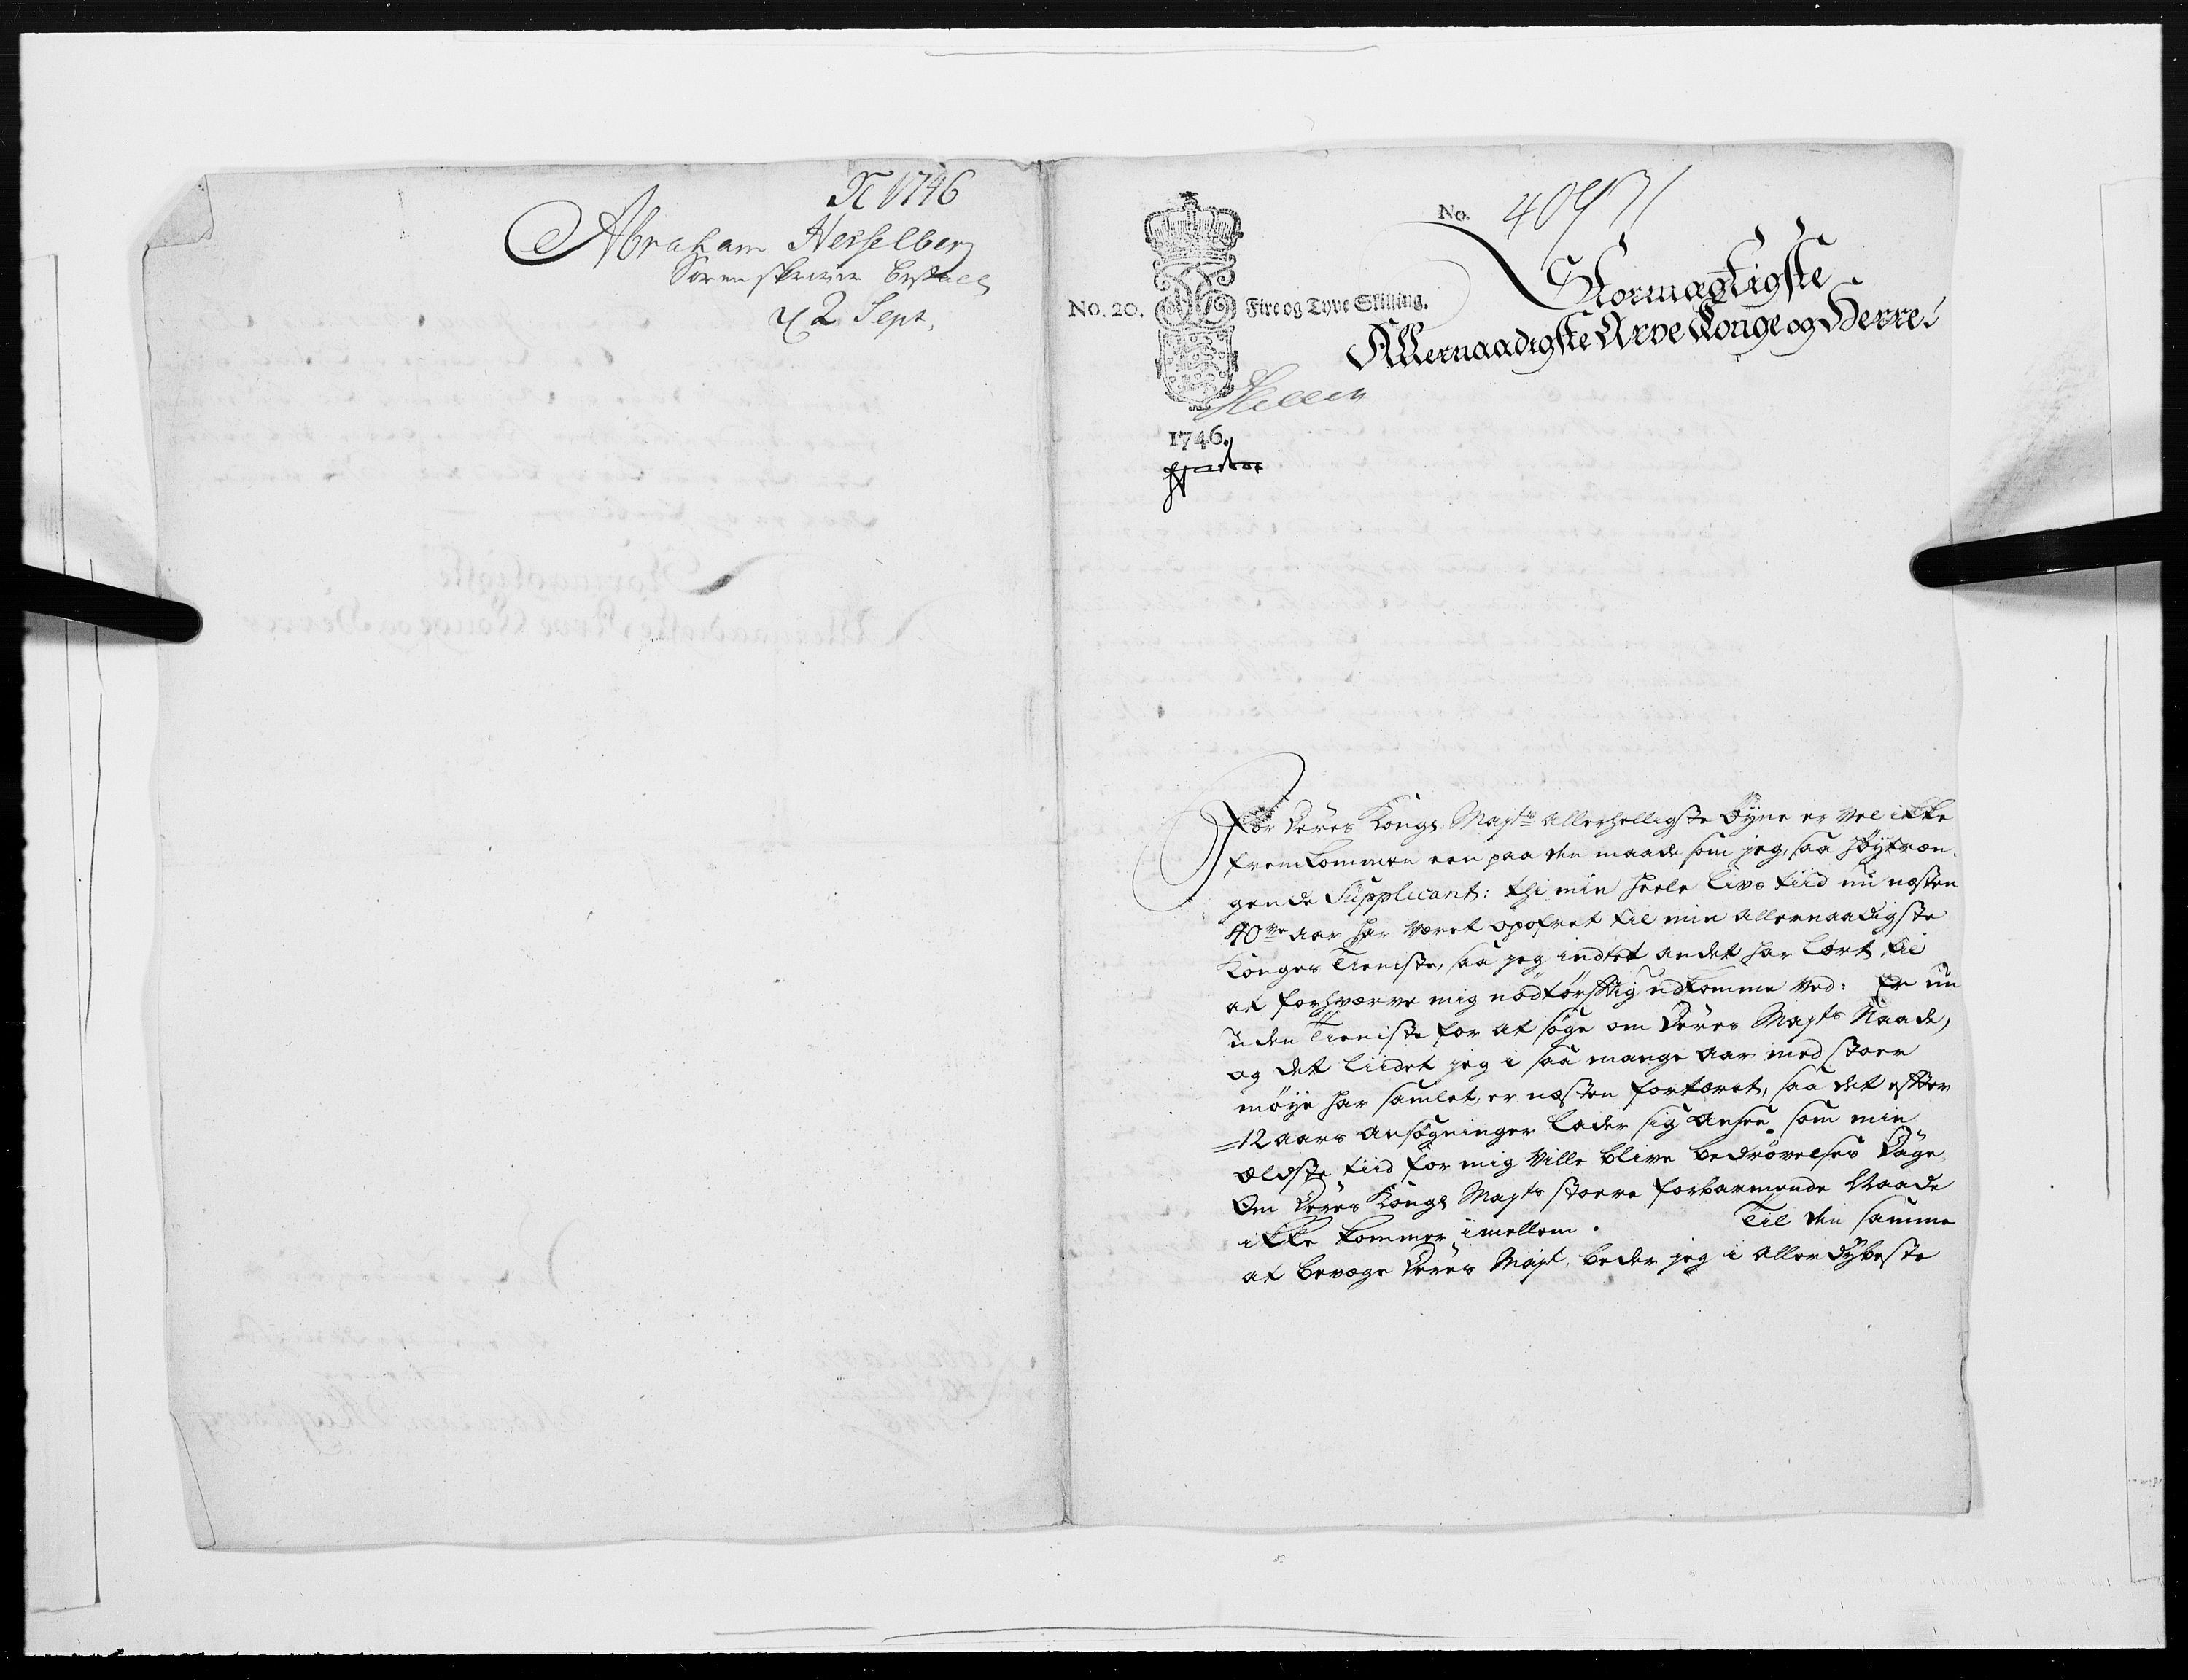 1746
Abraham Hesselberg
Sorenskriver bestall
2 Sept.
No.
No. 20.
Fire og Tyve Skilling.
1746.
Stormægtigste
Allernaadigste Arve Konge og Herre!
For Deres Kongl. Majts allerhelligste Øyne er vel ikke
fremkommen een paa den maade som jeg, saa høytræn-
gende Supplicant: thi min heele livs tiid nu næsten
40ve aar har været opofret til min allernaadigste
Konges Tieniste, saa jeg indtet andet har lært, til
at forhværve mig nødtørfftig udkomme ved: Er nu
uden Tieniste for at søge om Deres Majts Naade,
og det liidet jeg i saa mange aar med stoer
møye har samlet, er næsten fortæret, saa det effter
12 aars ansøgninger lader sig ansee, som min
ældste tiid for mig ville blive bedrøvelses Dage,
Om Deres Kongl Majts stoere forbarmende Naade
ikke kommer imellem. Til den samme
at bevæge Deres Majt, beder jeg i aller dybeste